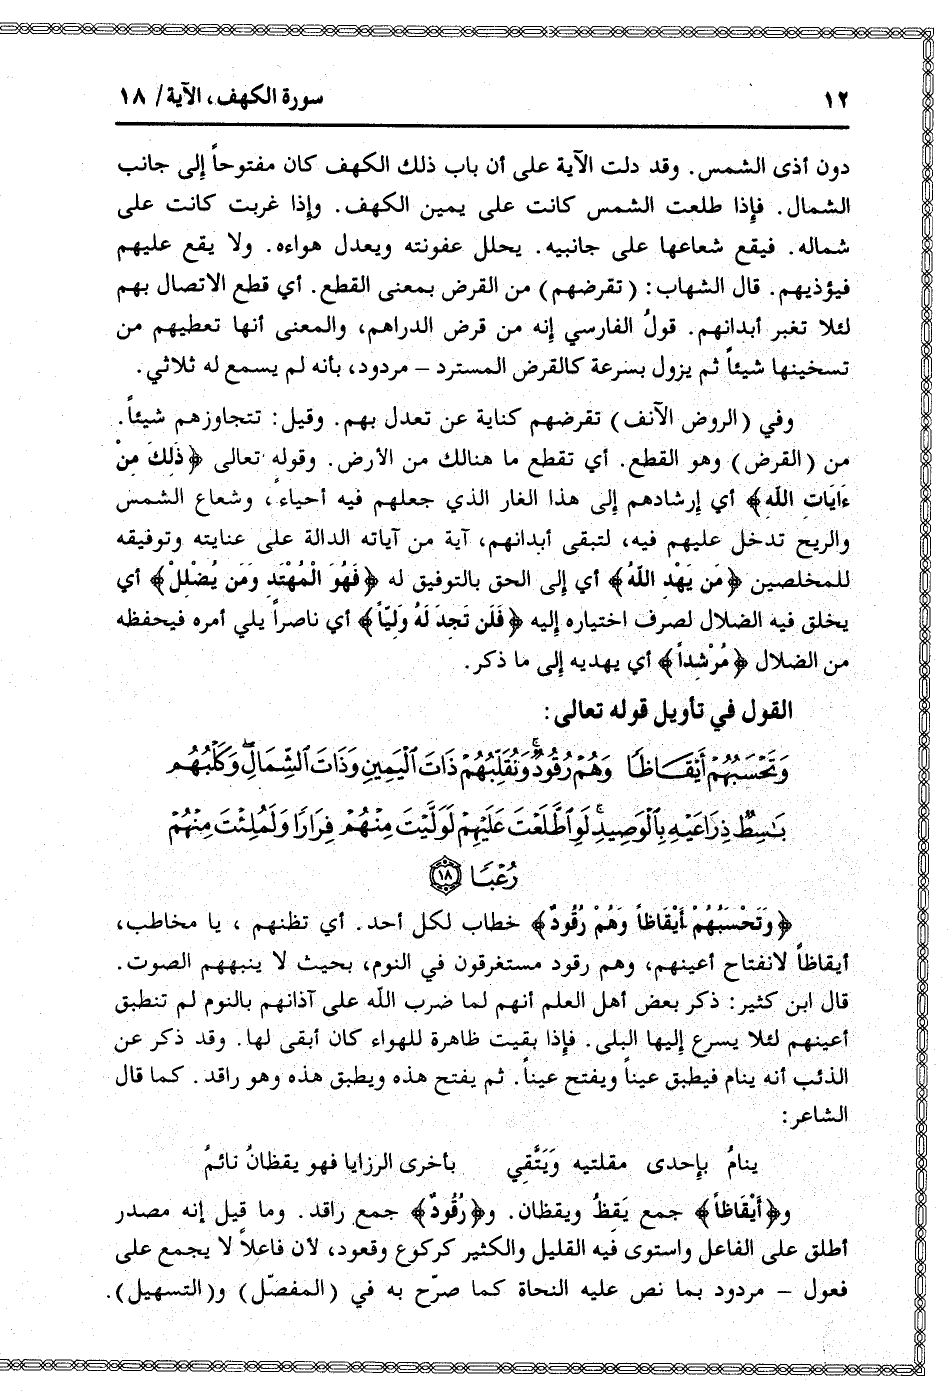 ١٢
سورة الكهف، الآية/ ١٨
دون أذى الشمس. وقد دلت الآية على أن باب ذلك الكهف كان مفتوحاً إلى جانب
الشمال. فإذا طلعت الشمس كانت على يمين الكهف. وإذا غربت كانت على
شماله. فيقع شعاعها على جانبيه. يحلل عفونته ويعدل هواءه. ولا يقع عليهم
فيؤذيهم. قال الشهاب: (تقرضهم) من القرض بمعنى القطع. أي قطع الاتصال بهم
لئلا تغبر أبدانهم. قولُ الفارسي إنه من قرض الدراهم، والمعنى أنها تعطيهم من
تسخينها شيئاً ثم يزول بسرعة كالقرض المسترد – مردود، بأنه لم يسمع له ثلاثي.
وفي (الروض الآنف) تقرضهم كناية عن تعدل بهم. وقيل: تتجاوزهم شيئاً.
من (القرض) وهو القطع. أي تقطع ما هنالك من الأرض. وقوله تعالى ﴿ذَلِكَ مِنْ
ءَايَاتِ اللَّهِ﴾ أي إرشادهم إلى هذا الغار الذي جعلهم فيه أحياء، وشعاع الشمس
والريح تدخل عليهم فيه، لتبقى أبدانهم، آية من آياته الدالة على عنايته وتوفيقه
للمخلصين ﴿مَن يَهْدِ اللَّهُ﴾ أي إلى الحق بالتوفيق له ﴿فَهُوَ الْمُهْتَدِ وَمَن يُضْلِلْ﴾ أي
يخلق فيه الضلال لصرف اختياره إليه ﴿فَلَن تَجِدَ لَهُ وَلِيّاً﴾ أي ناصراً يلي أمره فيحفظه
من الضلال ﴿مُرْشِداً﴾ أي يهديه إلى ما ذكر.
القول في تأويل قوله تعالى:
وَتَحْسَبُهُمْ أَيْقَاظًا وَهُمْ رُقُودٌ ۚ وَنُقَلِّبُهُمْ ذَاتَ الْيَمِينِ وَذَاتَ الشِّمَالِ ۖ وَكَلْبُهُم
بَاسِطٌ ذِرَاعَيْهِ بِالْوَصِيدِ ۚ لَوِ اطَّلَعْتَ عَلَيْهِمْ لَوَلَّيْتَ مِنْهُمْ فِرَارًا وَلَمُلِئْتَ مِنْهُمْ
رُعْبًا ١٨
﴿وَتَحْسَبُهُمْ أَيْقَاظاً وَهُمْ رُقُودٌ﴾ خطاب لكل أحد. أي تظنهم ، يا مخاطب،
أيقاظاً لانفتاح أعينهم، وهم رقود مستغرقون في النوم، بحيث لا ينبههم الصوت.
قال ابن كثير: ذكر بعض أهل العلم أنهم لما ضرب الله على آذانهم بالنوم لم تنطبق
أعينهم لئلا يسرع إليها البلى. فإذا بقيت ظاهرة للهواء كان أبقى لها. وقد ذكر عن
الذئب أنه ينام فيطبق عيناً ويفتح عيناً. ثم يفتح هذه ويطبق هذه وهو راقد. كما قال
الشاعر:
ينامُ بإحدى مقلتيه وَيَتَّقِي بأخرى الرزايا فهو يقظانُ نائمُ
و﴿أَيْقَاظاً﴾ جمع يَقِظُ ويقظان. و﴿رُقُودٌ﴾ جمع راقد. وما قيل إنه مصدر
أطلق على الفاعل واستوى فيه القليل والكثير كركوع وقعود، لأن فاعلاً لا يجمع على
فعول – مردود بما نص عليه النحاة كما صرّح به في (المفصّل) و(التسهيل).